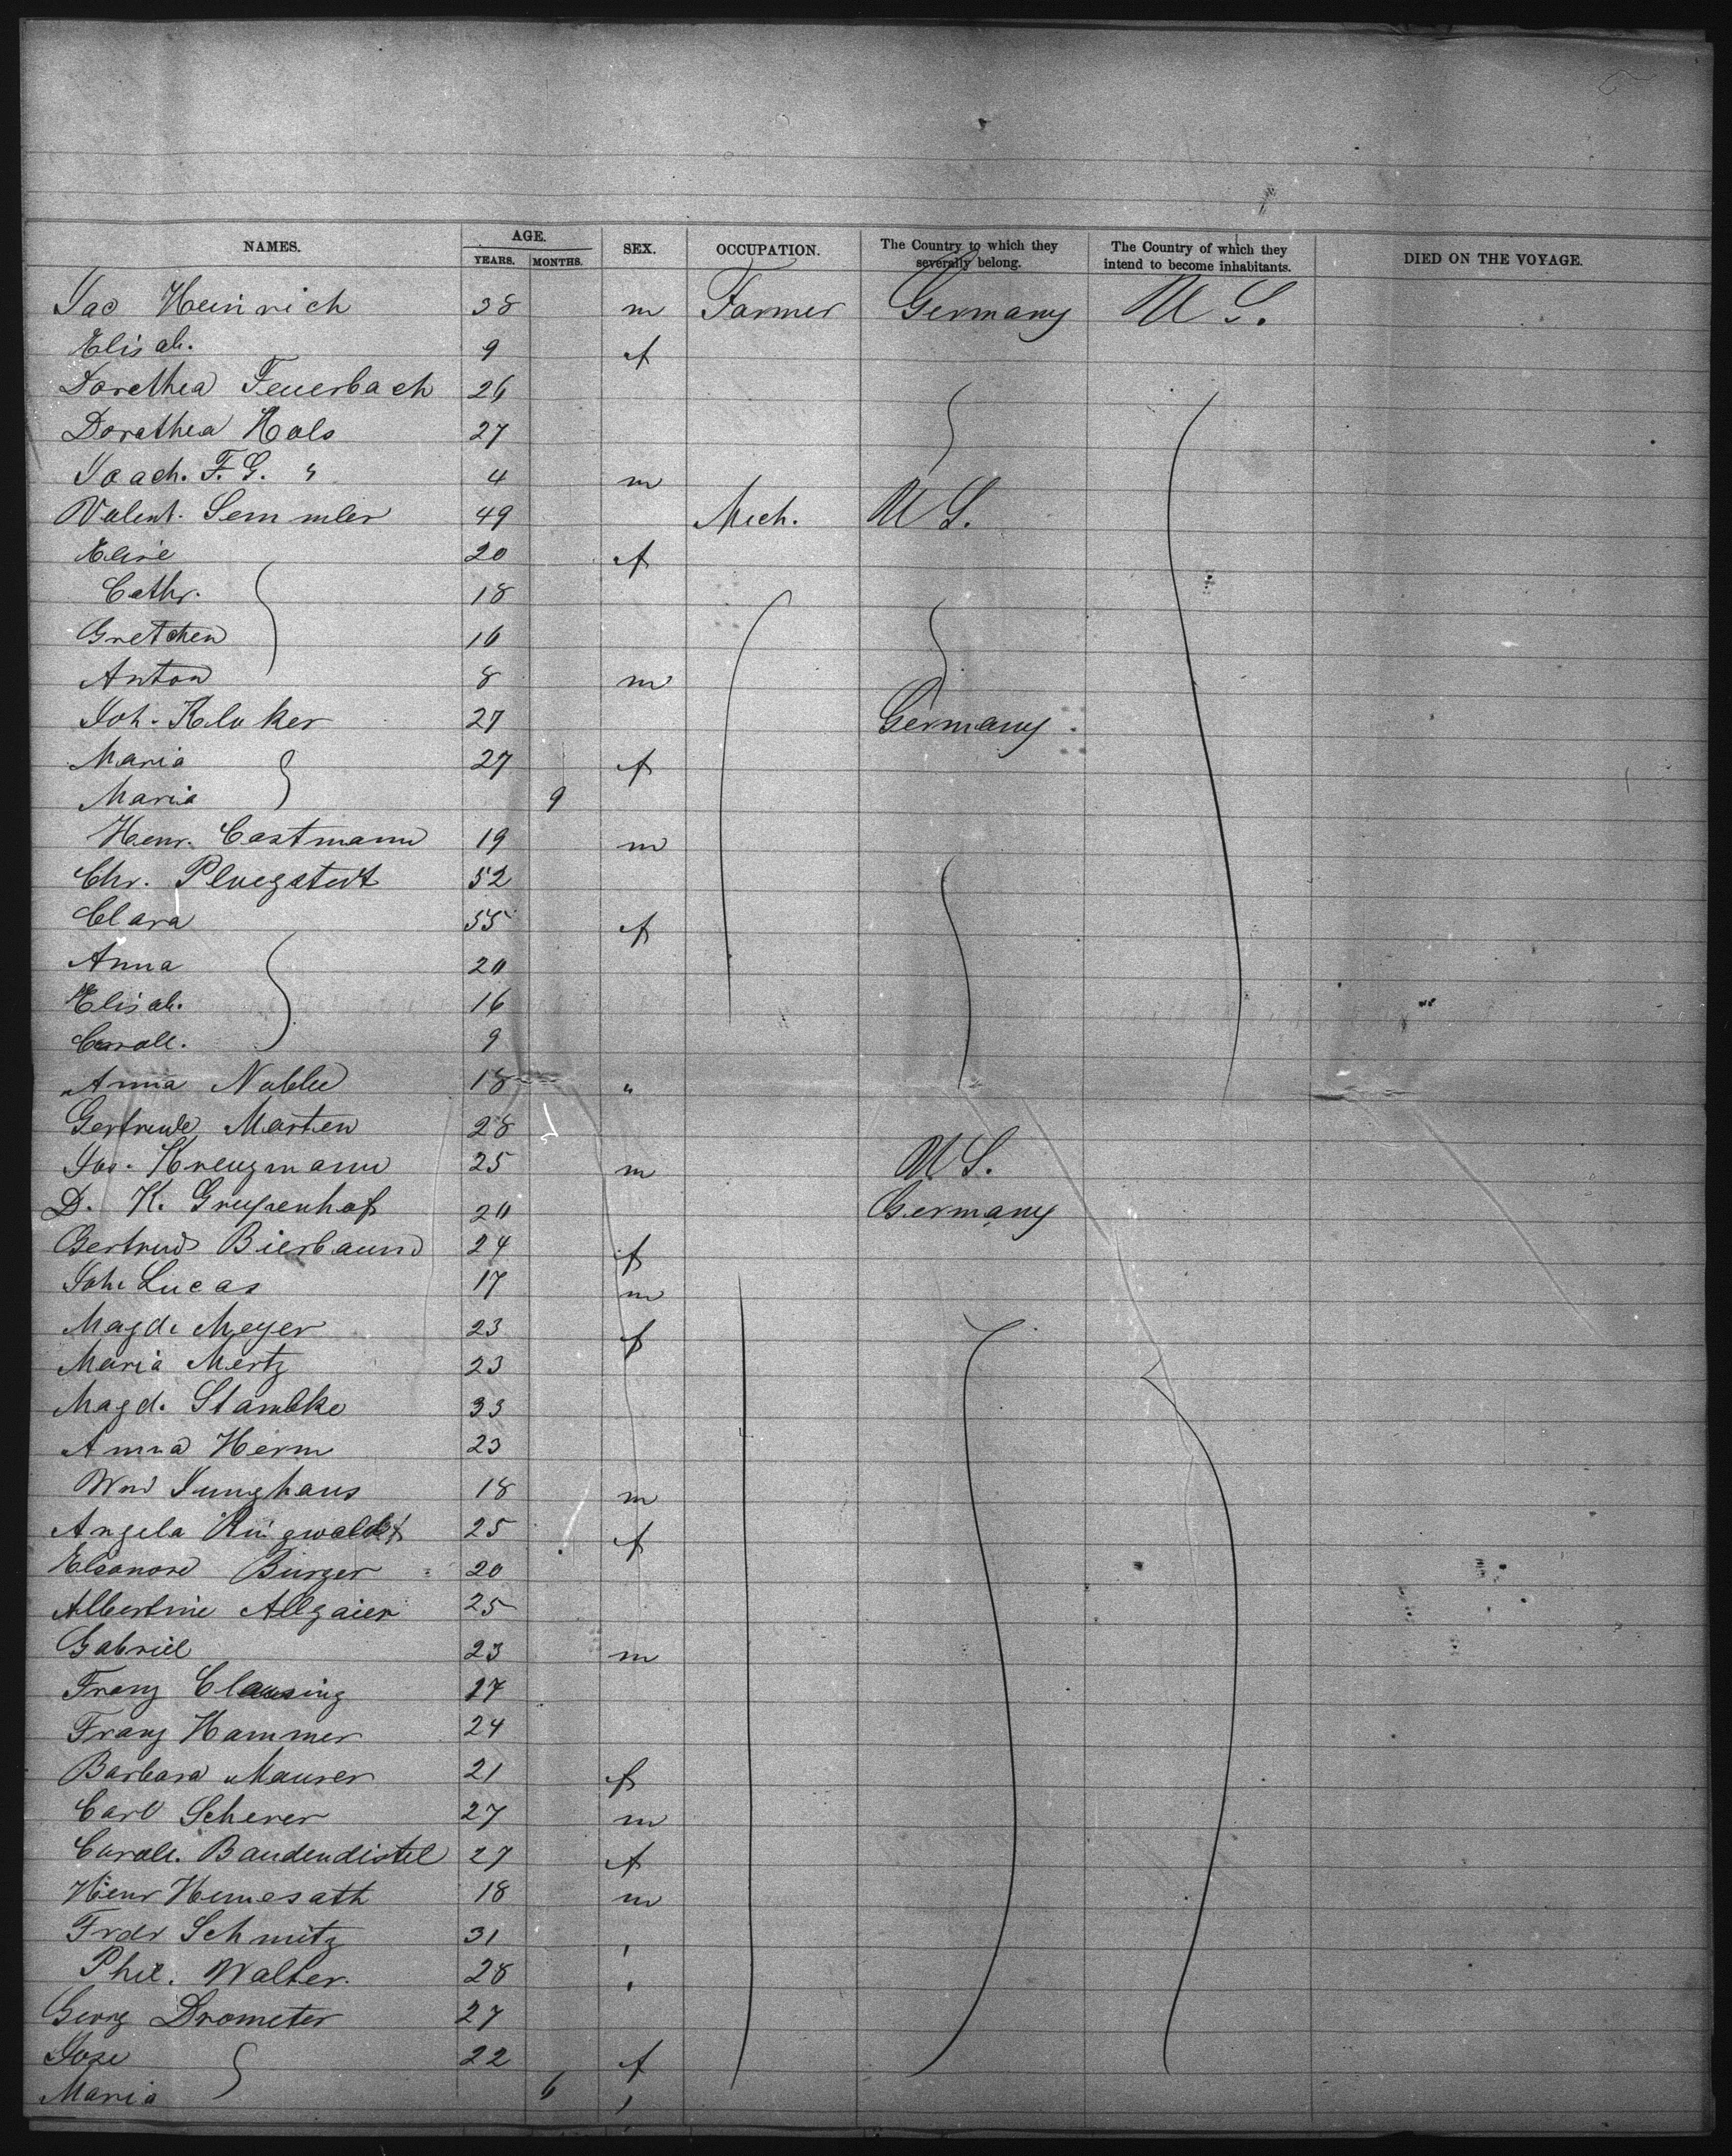 NAMES. AGE. YEARS. MONTHS. SEX. OCCUPATION. The Country to which they severally belong. The Country of which they intend to become inhabitants. DIED ON THE VOYAGE.
Jac Heinrich 38 m Farmer Germany U S.
Elisab. 9 f
Dorethea Feuerbach 26
Dorathea Kols 27
Joach. F. G. " 4 m
Valent. Semmler 49 Mech. U S.
Elise 20 f
Cathr. 18
Gretchen 16
Anton 8 m
Joh. Kluker 27 Germany.
Maria 27 f
Maria 9
Henr. Castmann 19 m
Chr. Pluegstedt 52
Clara 55 f
Anna 20
Elisab. 16
Caroll. 9
Anna 18 "
Gertrude Marten 28
Jos. Kreuzmann 25 m U S.
D. K. 20 Germany
Gertrud Bierbaum 24 f
Joh. Lucas 17 m
Magd. Meyer 23 f
Maria Mertz 23
Magd. Stambke 33
Anna Herm 23
Wm Junghans 18 m
Angela Ringwaldt 25 f
Eleonore Bürger 20
Albertine Allgaier 25
Gabriel 23 m
Franz Clausing 27
Franz Hammer 24
Barbara Maurer 21 f
Carl Scherer 27 m
Caroll. Baudendistel 27 f
Henr Hemesath 18 m
Fredr Schmitz 31 '
Phil. Walter. 28 '
Georg Drometer 27
Jose 22 f
Maria 6 '